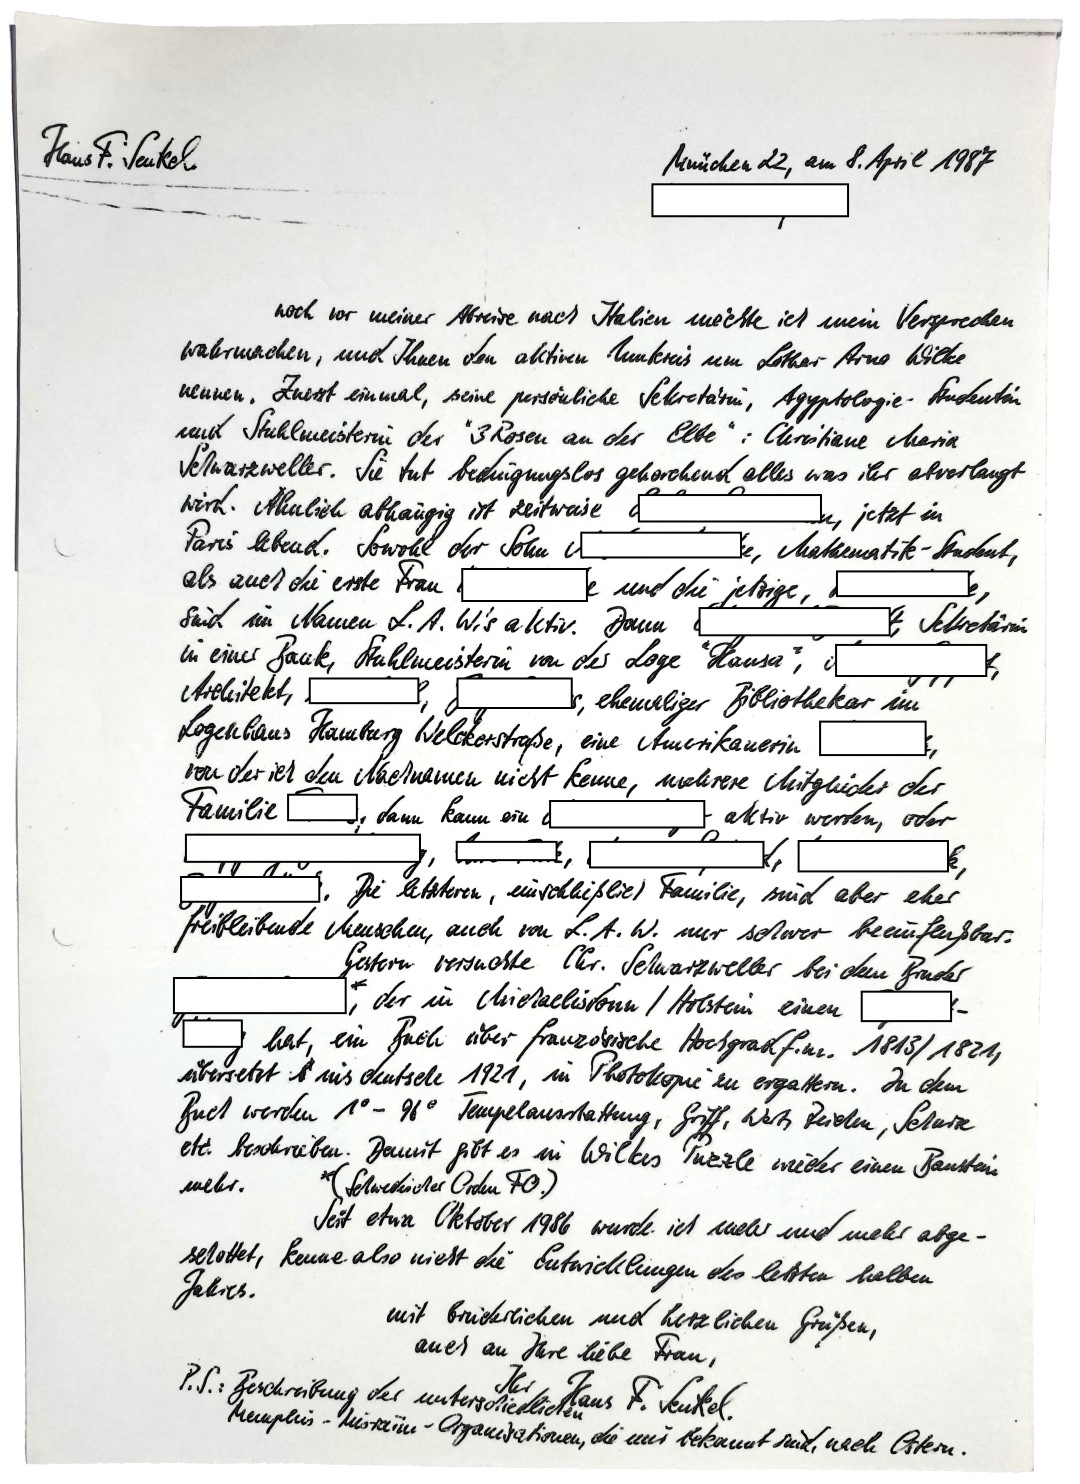 Hans F. Senkel
München 22, am 8. April 1987
noch vor meiner Abreise nach Italien möchte ich mein Versprechen
wahrmachen, und Ihnen den aktiven Umkreis um Lothar Arno Wilke
nennen. Zuerst einmal, seine persönliche Sekretärin, Ägyptologie-Studentin
und Stuhlmeisterin der "3 Rosen an der Elbe": Christiane Maria
Schwarzweller. Sie tut bedingungslos gehorchend alles was ihr abverlangt
wird. Ähnlich abhängig ist zeitweise n, jetzt in
Paris lebend. Sowohl der Sohn e, Mathematik-Student,
als auch die erste Frau e und die jetzige, e,
sind im Namen L.A.W.'s aktiv. Dann t, Sekretärin
in einer Bank, Stuhlmeisterin von der Loge "Hansa", t,
Architekt, , s, ehemaliger Bibliothekar im
Logenhaus Hamburg Welckerstraße, eine Amerikanerin ,
von der ich den Nachnamen nicht kenne, mehrere Mitglieder der
Familie , dann kann ein aktiv werden, oder
, , , ,
. Die letzteren, einschließlich Familie, sind aber eher
freibleibende Menschen, auch von L.A.W. nur schwer beeinflußbar.
Gestern versuchte Chr. Schwarzweller bei dem Bruder
*, der in Michaelisdonn / Holstein einen -
hat, ein Buch über französische Hochgradf.m. 1813/1821,
übersetzt ins deutsche 1921, in Photokopie zu ergattern. In dem
Buch werden 1° - 96° Tempelausstattung, Griff, Wort, Zeichen, Schurz
etc. beschrieben. Damit gibt es in Wilkes Puzzle wieder einen Baustein
mehr. *(Schwedischer Orden FO.)
Seit etwa Oktober 1986 wurde ich mehr und mehr abge-
schottet, kenne also nicht die Entwicklungen des letzten halben
Jahres.
mit brüderlichen und herzlichen Grüßen,
auch an Ihre liebe Frau,
Ihr Hans F. Senkel.
P.S.: Beschreibung der unterschiedlichen
Memphis-Misraim-Organisationen, die mir bekannt sind, nach Ostern.